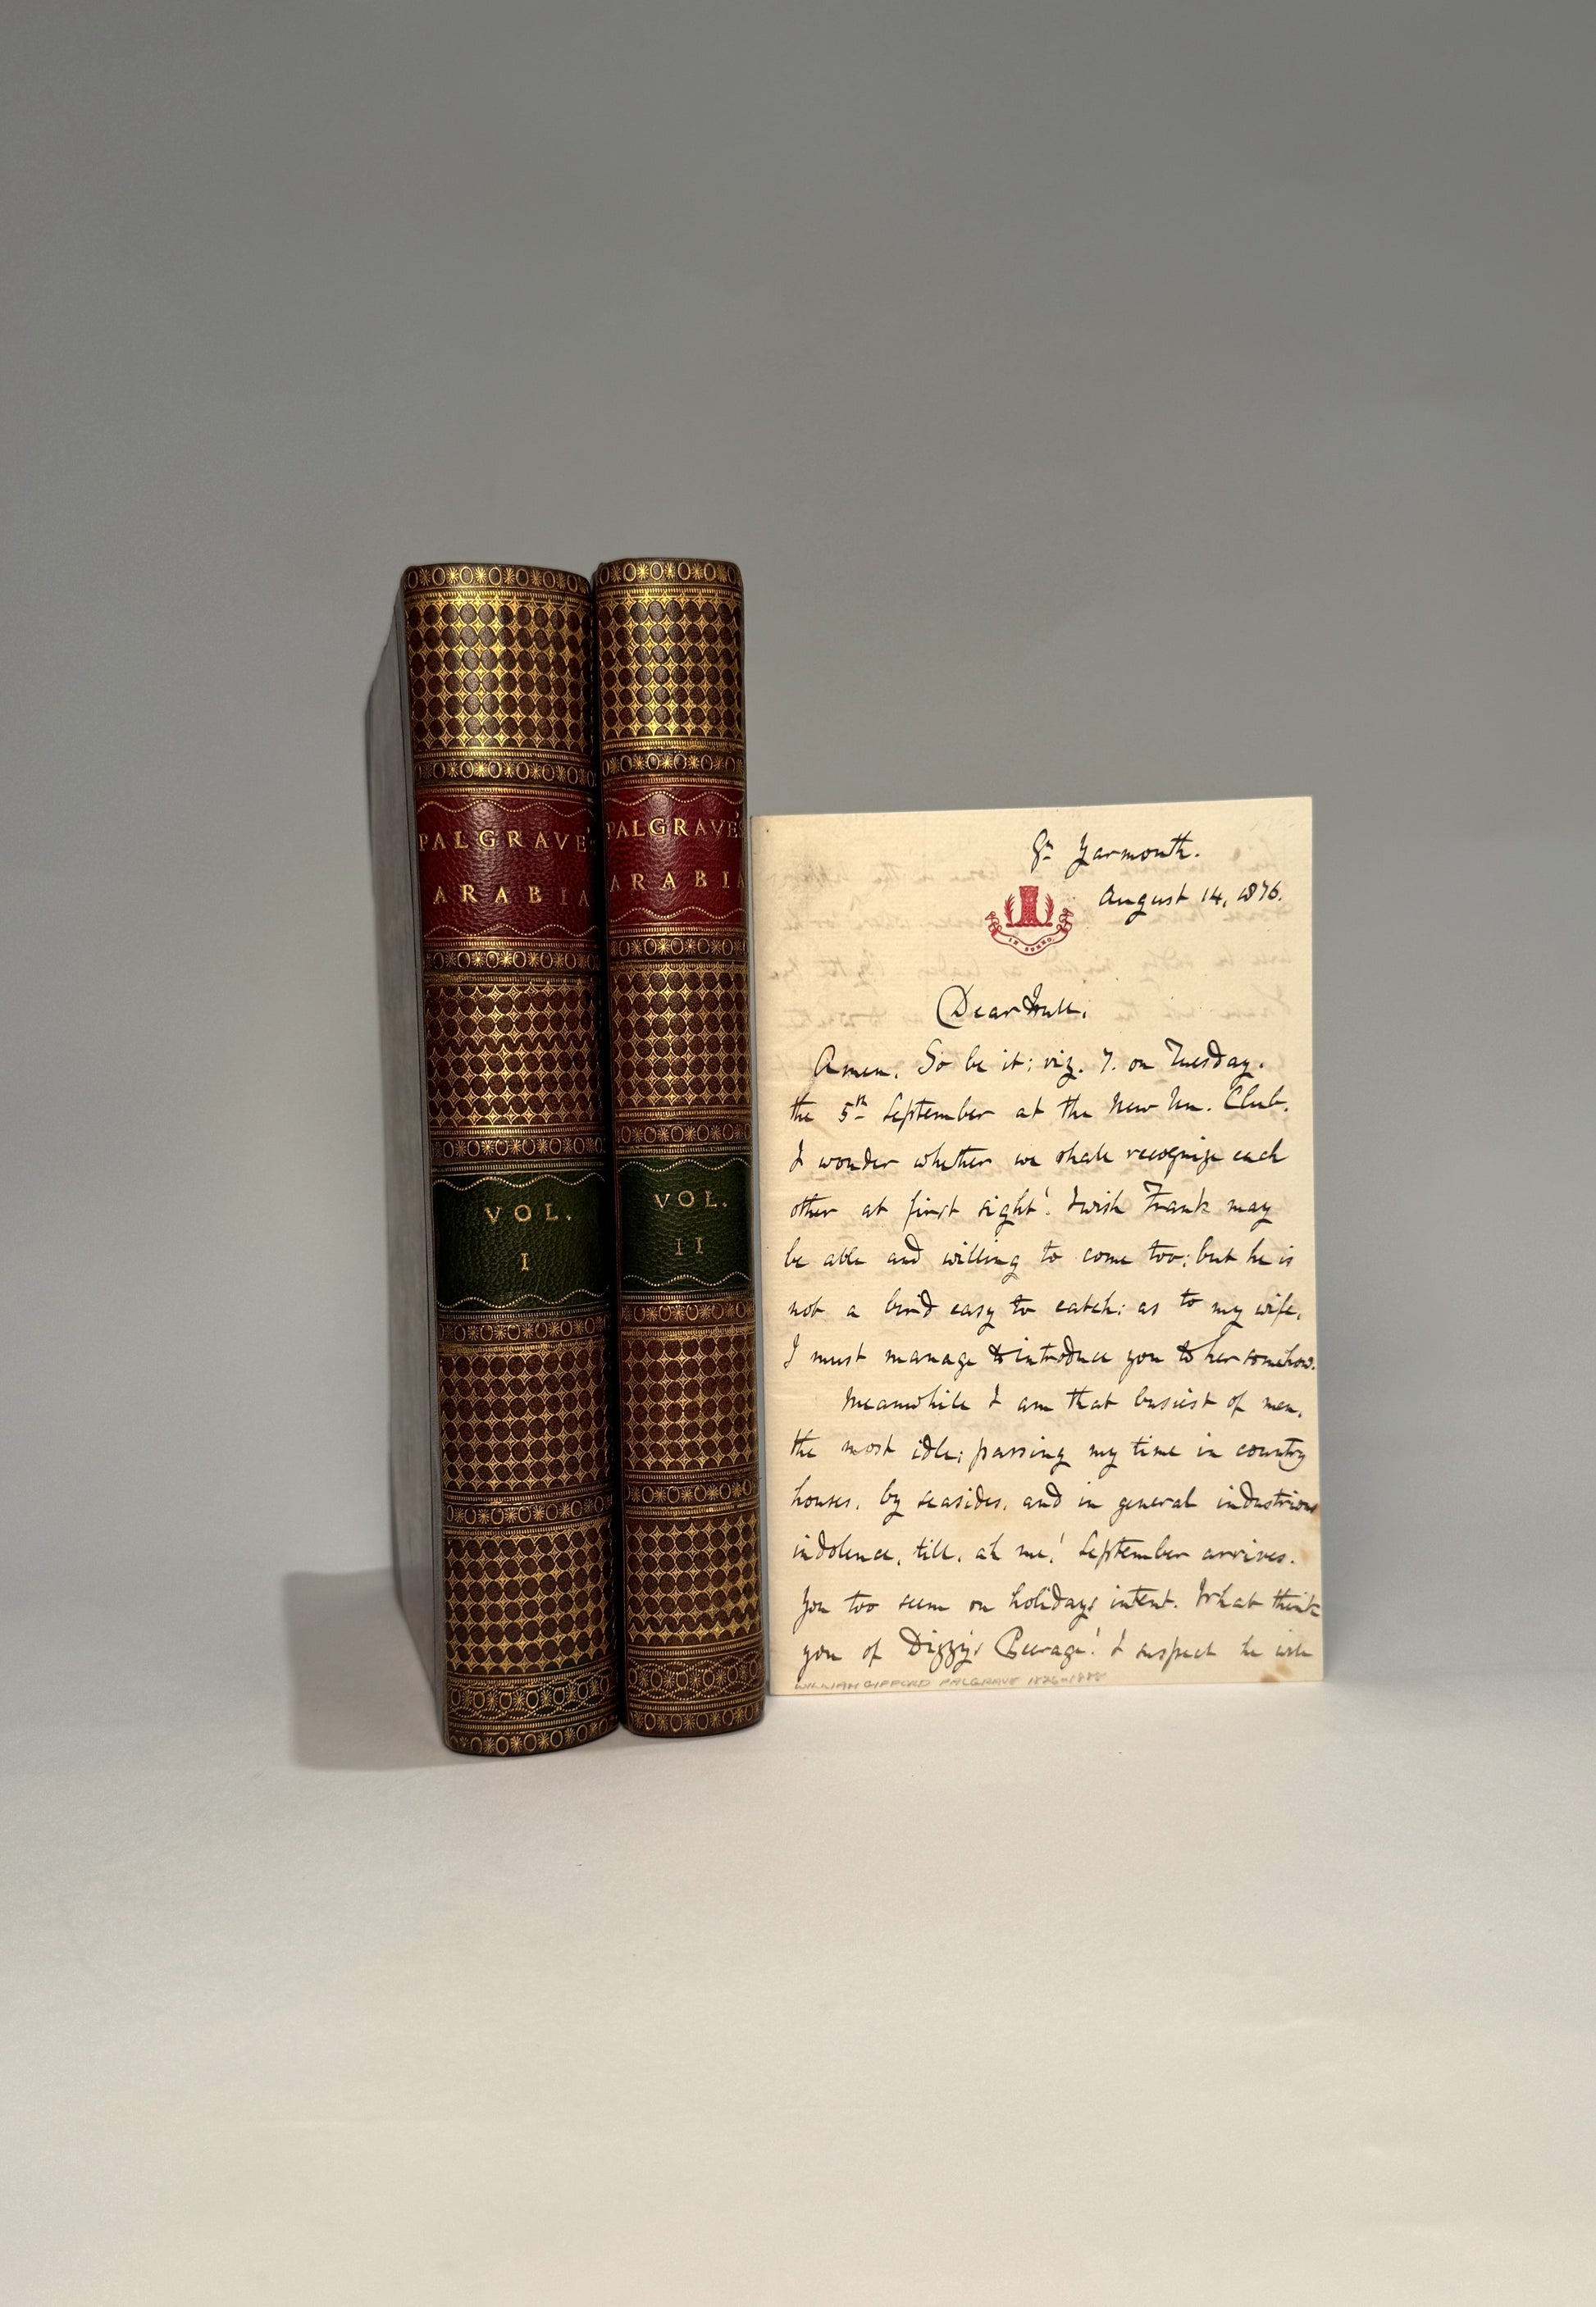 PALGRAVE'S
ARABIA
VOL.
I
PALGRAVE'S
ARABIA
VOL.
II
Gt Yarmouth.
August 14, 1876.
IN DOMINO
Dear Hull,
Amen. So be it; viz. 7. on Tuesday.
the 5th September at the New Un. Club.
I wonder whether we shall recognize each
other at first sight! I wish Frank may
be able and willing to come too; but he is
not a bird easy to catch: as to my wife,
I must manage to introduce you to her somehow.
Meanwhile I am that busiest of men,
the most idle; passing my time in country
houses, by seasides, and in general industrious
indolence, till, ah me! September arrives.
You too seem on holidays intent. What think
you of Dizzy's Peerage! I suspect he will
WILLIAM GIFFORD PALGRAVE 1826-1888